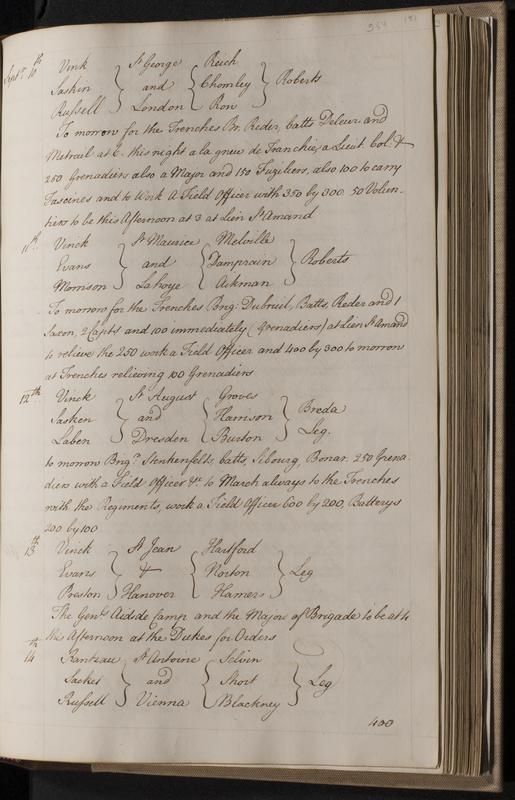 Septr 10th Vink } St George { Reich } Roberts
Saskin } and { Chomley
Russell } London { Row
To morrow for the Trenches Br. Reder, batts Deleur and
Metrail at 6. this night a la gneu de Tranchie, a Lieut. Col. &
250 Grenadiers also a Major and 150 Fuziliers, also 100 to carry
Fascines and to Work A Field Officer with 350 by 300. 50 Volun-
tiers to be this Afternoon at 3 at Lien St Amand
11th Vinck } St Maurice { Melville } Roberts
Evans } and { Damprain
Morrison } Lahoye { Aikman
To morrow for the Trenches Brig. Dubruil, Batts, Reder and 1
Saxon, 2 Capts and 100 immediately (Grenadiers) at Lien St Amand
to relieve the 250 work a Field Officer and 400 by 300 to morrow
at Trenches relieving 100 Grenadiers
12th Vinck } St August { Groves } Breda
Sasken } and { Harrison } Leg.
Laben } Dresden { Burton
to morrow Brigr. Stenkenfelts, batts, Sibourg, Bonar. 250 Grena-
diers with a Field Officer &c. to March always to the Trenches
with the Regiments, work a Field Officer 600 by 200, Batterys
200 by 100
13th Vinck } St Jean { Hartford } Leg
Evans } & { Norton
Preston } Hanover { Hamers
The Genls Aidsde Camp and the Major of Brigade to be at 4
the Afternoon at the Dukes for Orders
14th Rantzau } St Antoine { Selvin } Leg
Sacket } and { Short
Russell } Vienna { Blackney
400